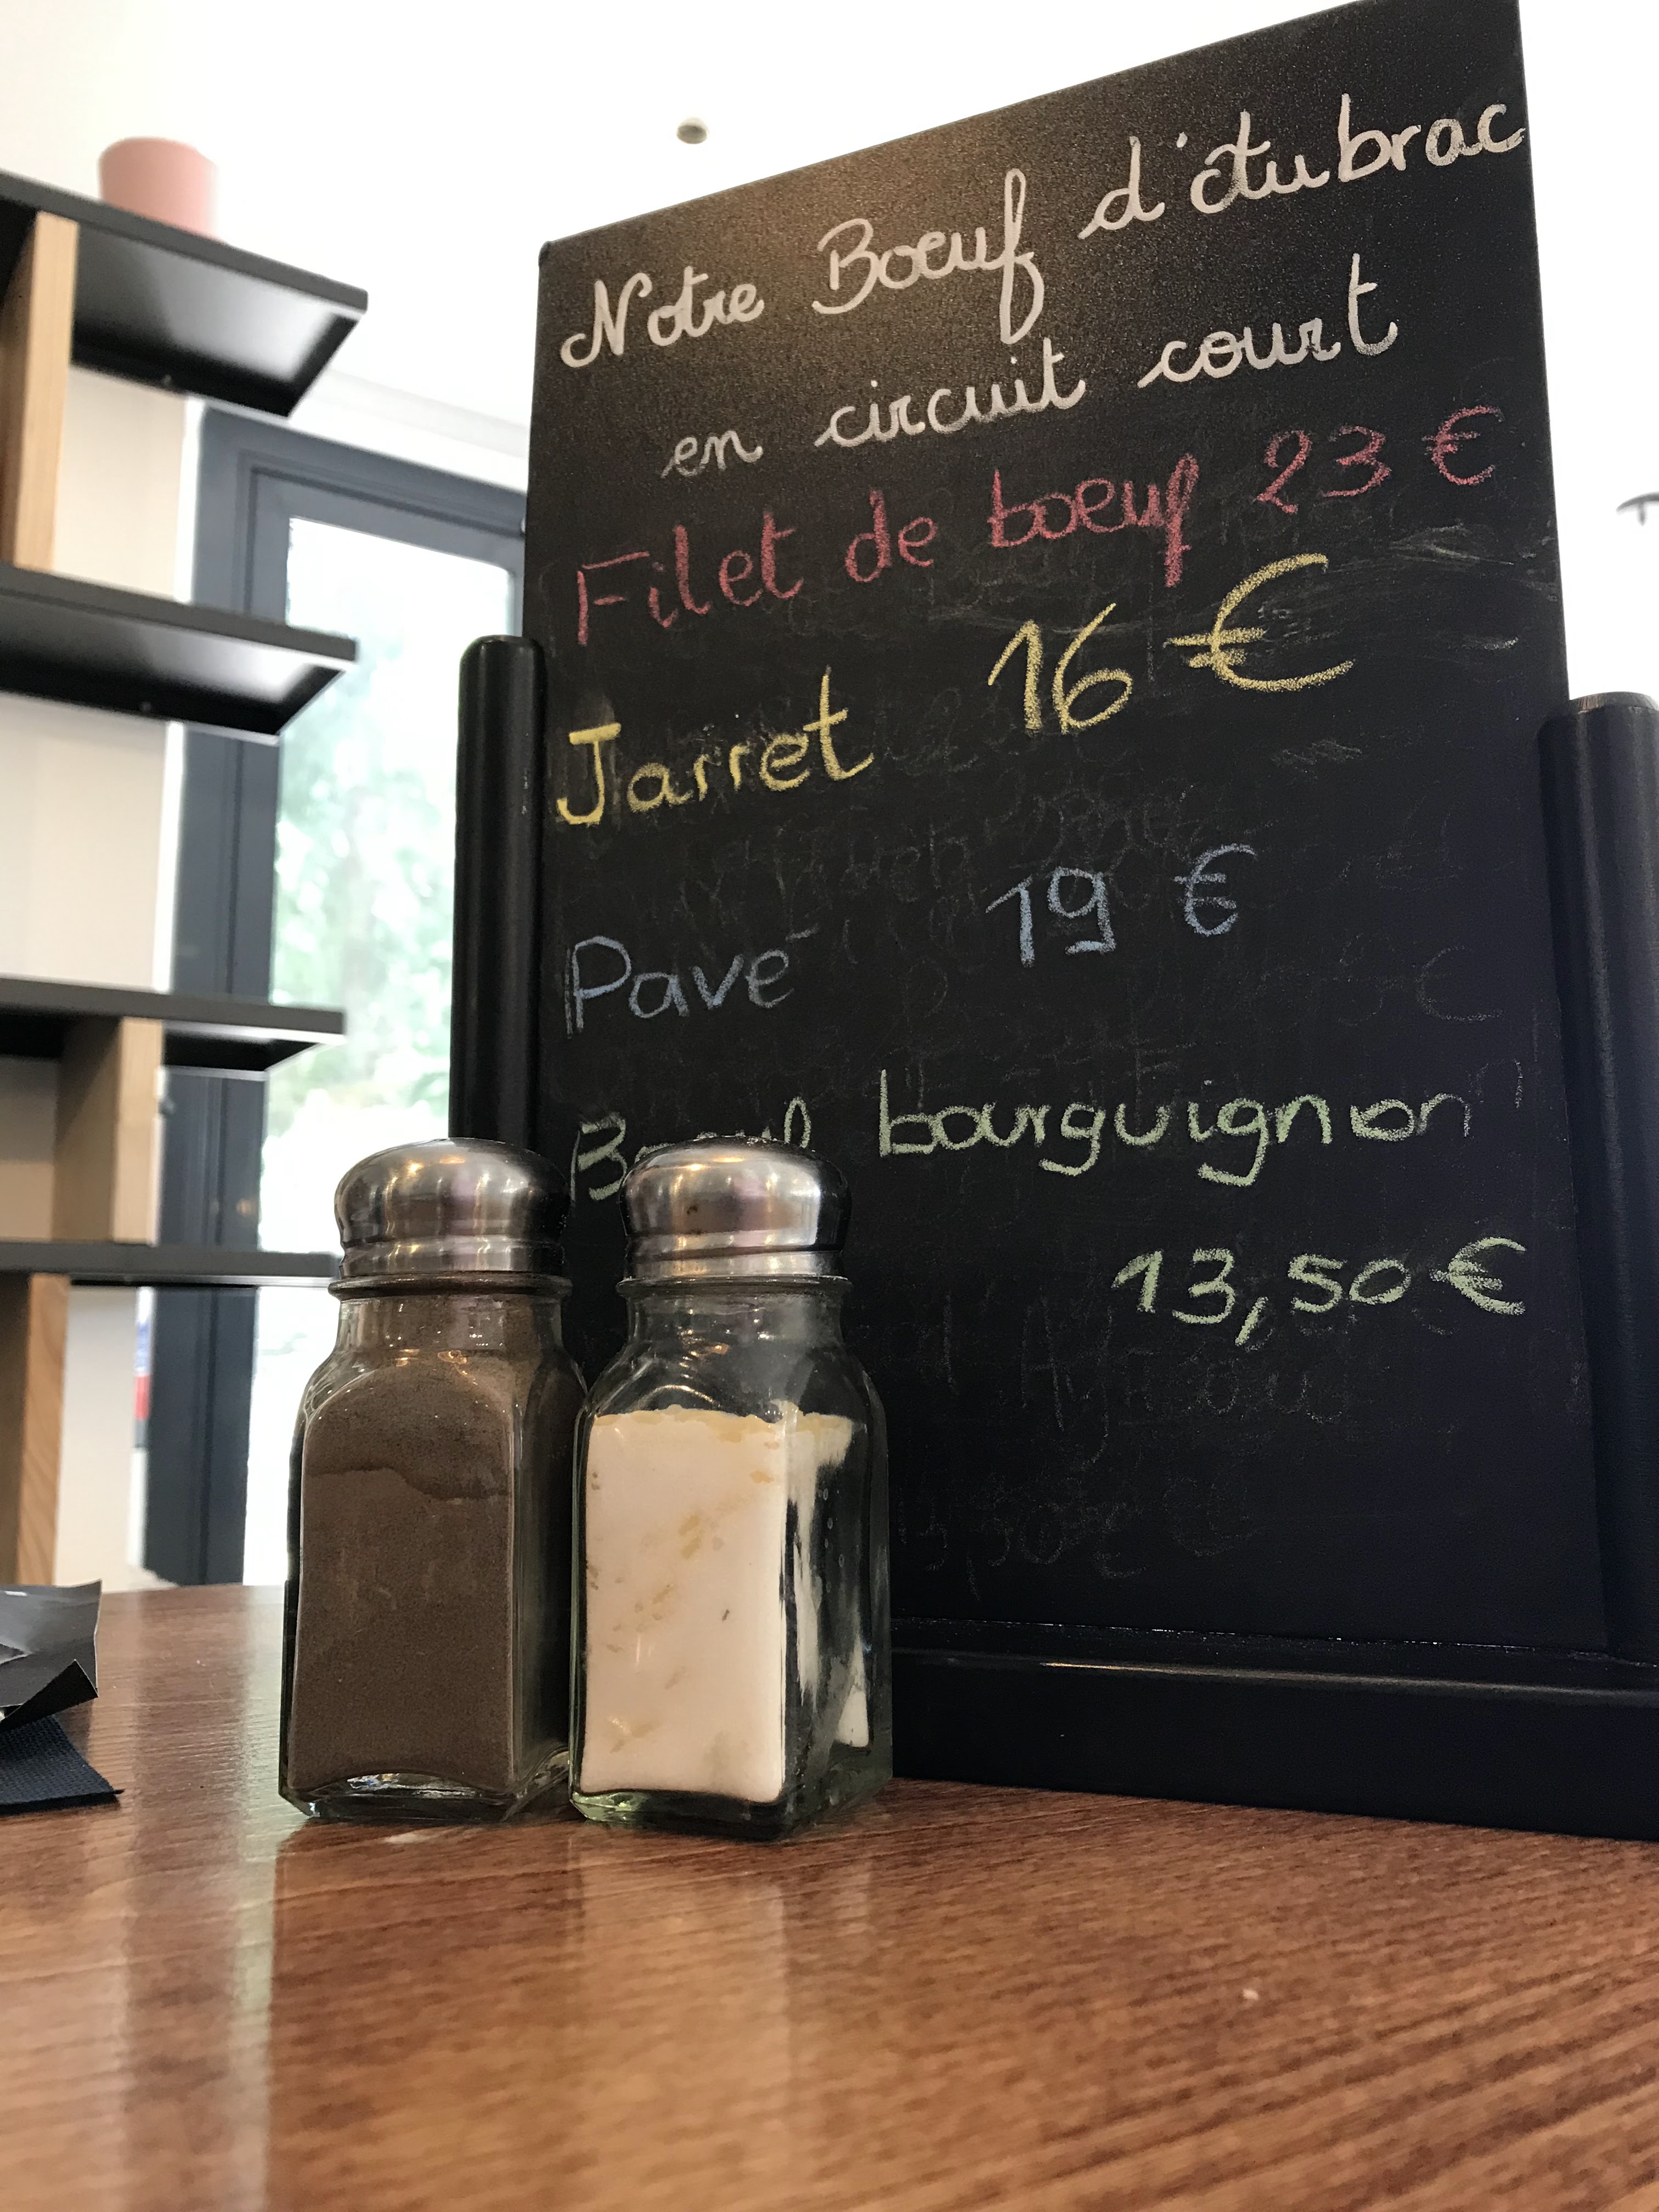 Notre Boeuf d'Aubrac
en circuit court
Filet de boeuf 23 €
Jarret 16 €
Pavé 19 €
Boeuf bourguignon
13,50 €